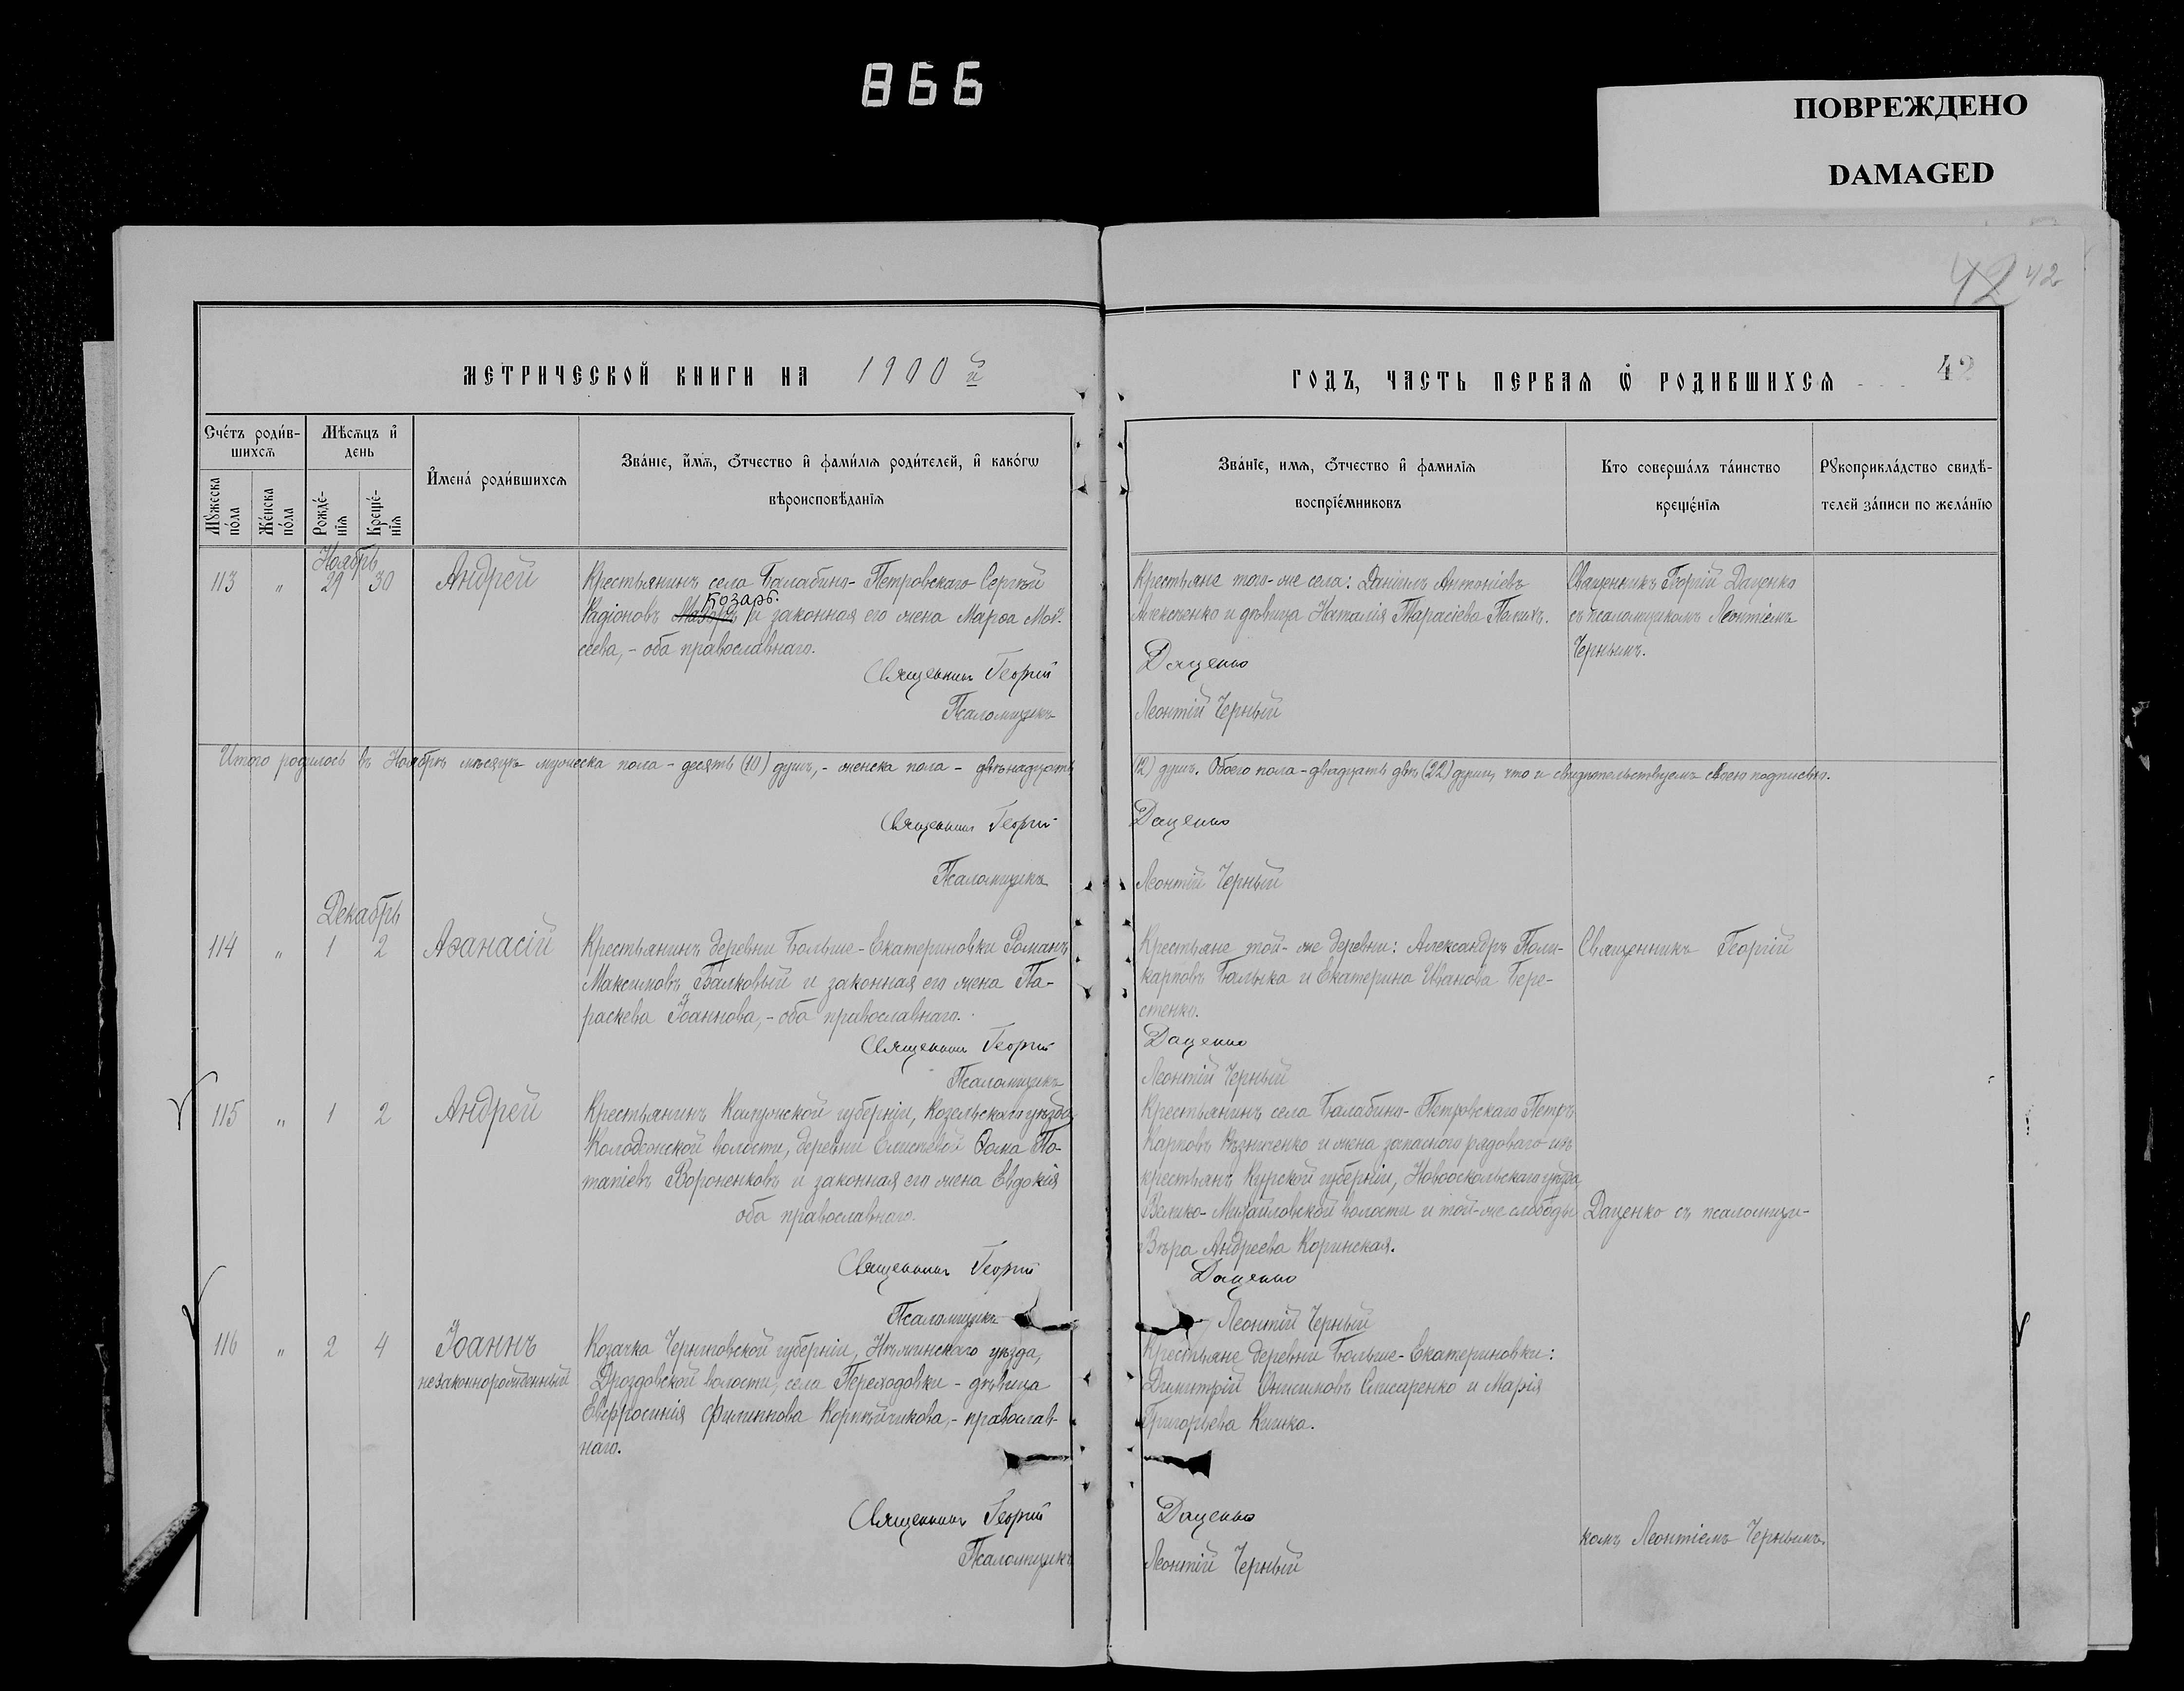 866
ПОВРЕЖДЕНО
DAMAGED
42 42
МЕТРИЧЕСКОЙ КНИГИ НА 1900й
ГОДЪ, ЧАСТЬ ПЕРВАЯ Ѡ РОДИВШИХСѦ
42
Счетъ родив-
шихсѧ
Мѣсѧцъ и
день
Мужеска
пола
Женска
пола
Рожде-
нїѧ
Креще-
нїѧ
Имена родившихсѧ
Званїе, имѧ, ѻтчество и фамилїѧ родителей, и какогѡ
вѣроисповѣданїѧ
Званїе, имѧ, ѻтчество и фамилїѧ
воспрїемниковъ
Кто совершалъ таинство
крещенїѧ
Рукоприкладство свидѣ-
телей записи по желанїю
Ноябрь
113 " 29 30 Андрей
Крестьянинъ села Балабино-Петровскаго Сергѣй
Козарь.
Радіоновъ и законная его жена Марѳа Мои-
сеева, - оба православнаго.
Священникъ Георгій
Псаломщикъ
Крестьяне того-же села: Даніилъ Антоніевъ
и дѣвица Наталія Тарасіева
Даценко
Леонтій Черный
Священникъ Георгій Даценко
съ псаломщикомъ Леонтіемъ
Чернымъ.
Итого родилось въ Ноябрѣ мѣсяцѣ мужеска пола - десять (10) душъ, - женска пола - двѣнадцать
(12) душъ. Обоего пола - двадцать двѣ (22) души, что и свидѣтельствуемъ своею подписью.
Священникъ Георгій
Даценко
Псаломщикъ
Леонтій Черный
Декабрь
114 " 1 2 Аѳанасій
Крестьянинъ деревни Больше-Екатериновки Романъ
Максимовъ Балковый и законная его жена Па-
раскева Іоаннова, - оба православнаго.
Священникъ Георгій
Псаломщикъ
Крестьяне той-же деревни: Александръ Поли-
карповъ Балыка и Екатерина Иванова Бере-
стенко.
Даценко
Леонтій Черный
Священникъ Георгій
115 " 1 2 Андрей
Крестьянинъ Калужской губерніи, Козельскаго уѣзда
волости, деревни Ѳома По-
тапіевъ Вороненковъ и законная его жена Евдокія
оба православнаго.
Священникъ Георгій
Псаломщикъ
Крестьянинъ села Балабино-Петровскаго Петръ
Карповъ и жена запаснаго рядоваго изъ
крестьянъ Курской губерніи, Новооскольскаго уѣзда
Велико-Михайловской волости и той-же слободы
Вѣра Андреева Коринская.
Даценко
Леонтій Черный
Даценко съ псаломщи-
116 " 2 4 Іоаннъ
незаконнорожденный
Козачка Черниговской губерніи, Нѣжинскаго уѣзда,
Дроздовской волости, села Переходовки - дѣвица
Евфросинія Филиппова Корнѣйчикова, - православ-
наго.
Священникъ Георгій
Псаломщикъ
Крестьяне деревни Больше-Екатериновки:
Димитрій Онисимовъ Слисаренко и Марія
Григорьева Кишка.
Даценко
Леонтій Черный
комъ Леонтіемъ Чернымъ.